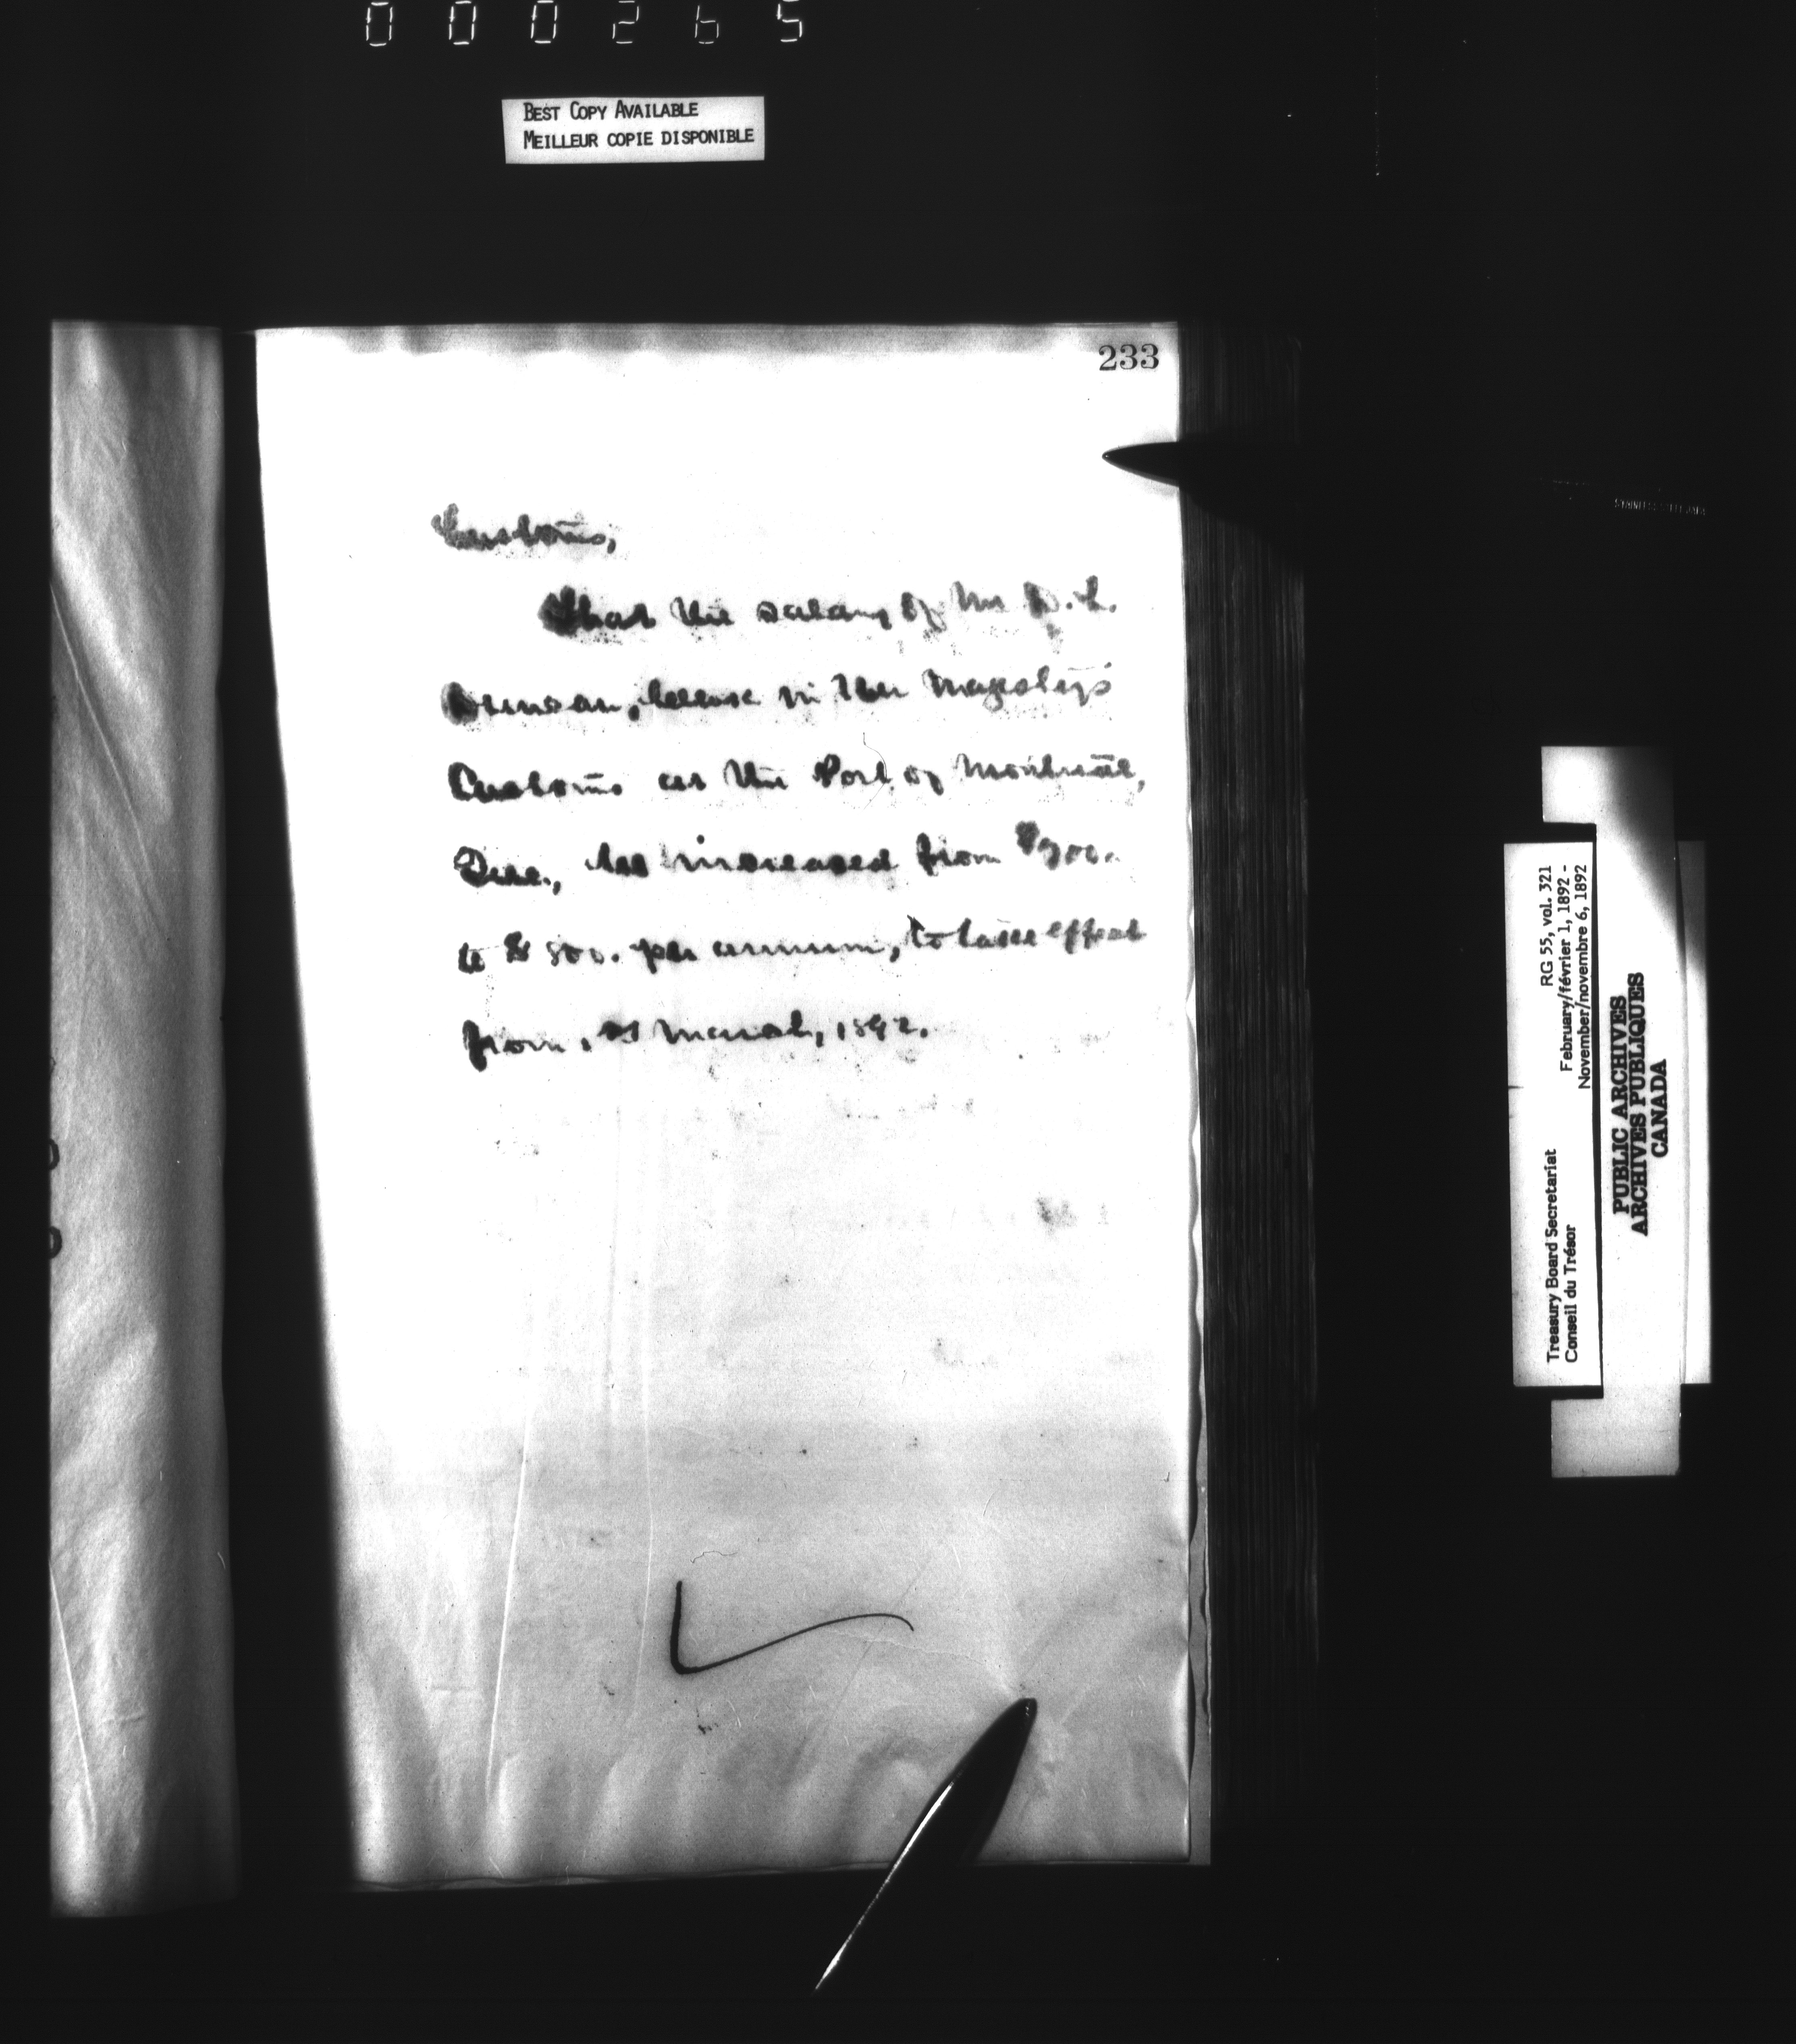 000265
BEST COPY AVAILABLE
MEILLEUR COPIE DISPONIBLE
233
Customs,
That the salary of Mr D. L.
Duncan, in Her Majesty's
Customs at the Port of Montreal,
Que., be increased from
to per annum, to take effect
from 1st March, 1892.
RG 55, vol. 321
February/février 1, 1892 -
November/novembre 6, 1892
Treasury Board Secretariat
Conseil du Trésor
PUBLIC ARCHIVES
ARCHIVES PUBLIQUES
CANADA